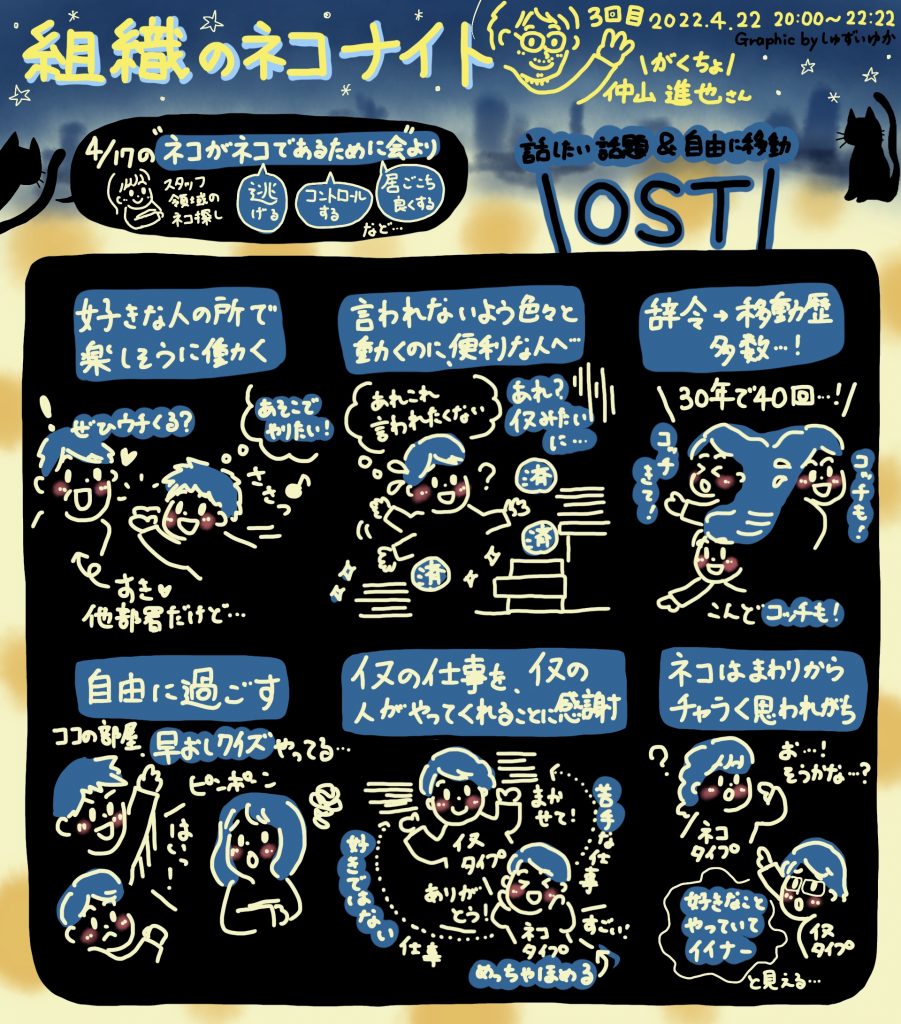 組織のネコナイト
3回目 2022.4.22 20:00〜22:22
Graphic by しゅずいゆか
\がくちょ/
仲山 進也さん
4/17の"ネコがネコであるために会"より
スタッフ
領域の
ネコ探し
逃
げる
コントロール
する
居ごこち
良くする
など…
話したい話題 & 自由に移動
\OST/
好きな人の所で
楽しそうに働かく
!
ぜひウチくる?
あそこで
やりたい!
ささっ♪
すき♥
他部署だけど…
言われないよう色々と
動くのに、便利な人へ…
あれこれ
言われたくない
あれ?
イヌみたい
に…
?
済
済
済
辞令→移動歴
多数…!
\30年で40回…!/
コッチきて!
コッチも!
こんどコッチも!
自由に過ごす
ココの部屋、早おしクイズやってる…
ピンポーン
はいっ!
イヌの仕事を、イヌの
人がやってくれることに感謝
まか
せて!
イヌ
タイプ
苦手な仕事
好きではない仕事
ありが
とう!
ネコ
タイプ
すごい!
めっちゃほめる
ネコはまわりから
チャラく思われがち
?
お…!
そうかな…?
ネコ
タイプ
好きなこと
やっていて
イイナー
と見える…
イヌ
タイプ